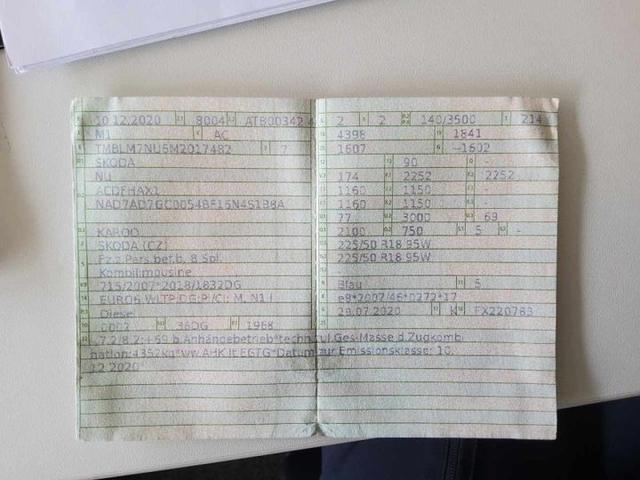 10.12.2020 8004 ATB00342 4
M1 AC
TMBLM7NU5M2017482 7
SKODA
NU
ACDFHAX1
NAD7AD7GC0054BF16N4S1B8A
KAROQ
SKODA (CZ)
Fz.z.Pers.bef.b. 8 Spl.
Kombilimousine
715/2007*2018/1832DG
EURO6;WLTP;DG;PI/CI: M, N1 I
Diesel
0002 36DG 1968
2 2 140/3500 214
4398 1841
1607 -1602
90 -
174 2252 2252
1160 1150 -
1160 1150 -
77 3000 69
2100 750 5 -
225/50 R18 95W
225/50 R18 95W
Blau 5
e8*2007/46*0272*17
29.07.2020 K FX220783
7.2/8.2:+59 b.Anhängebetrieb*techn.zul.Ges-Masse d.Zugkombi
nation:4352kg*ww.AHK lt.EGTG*Datum zur Emissionsklasse: 10.
12.2020*